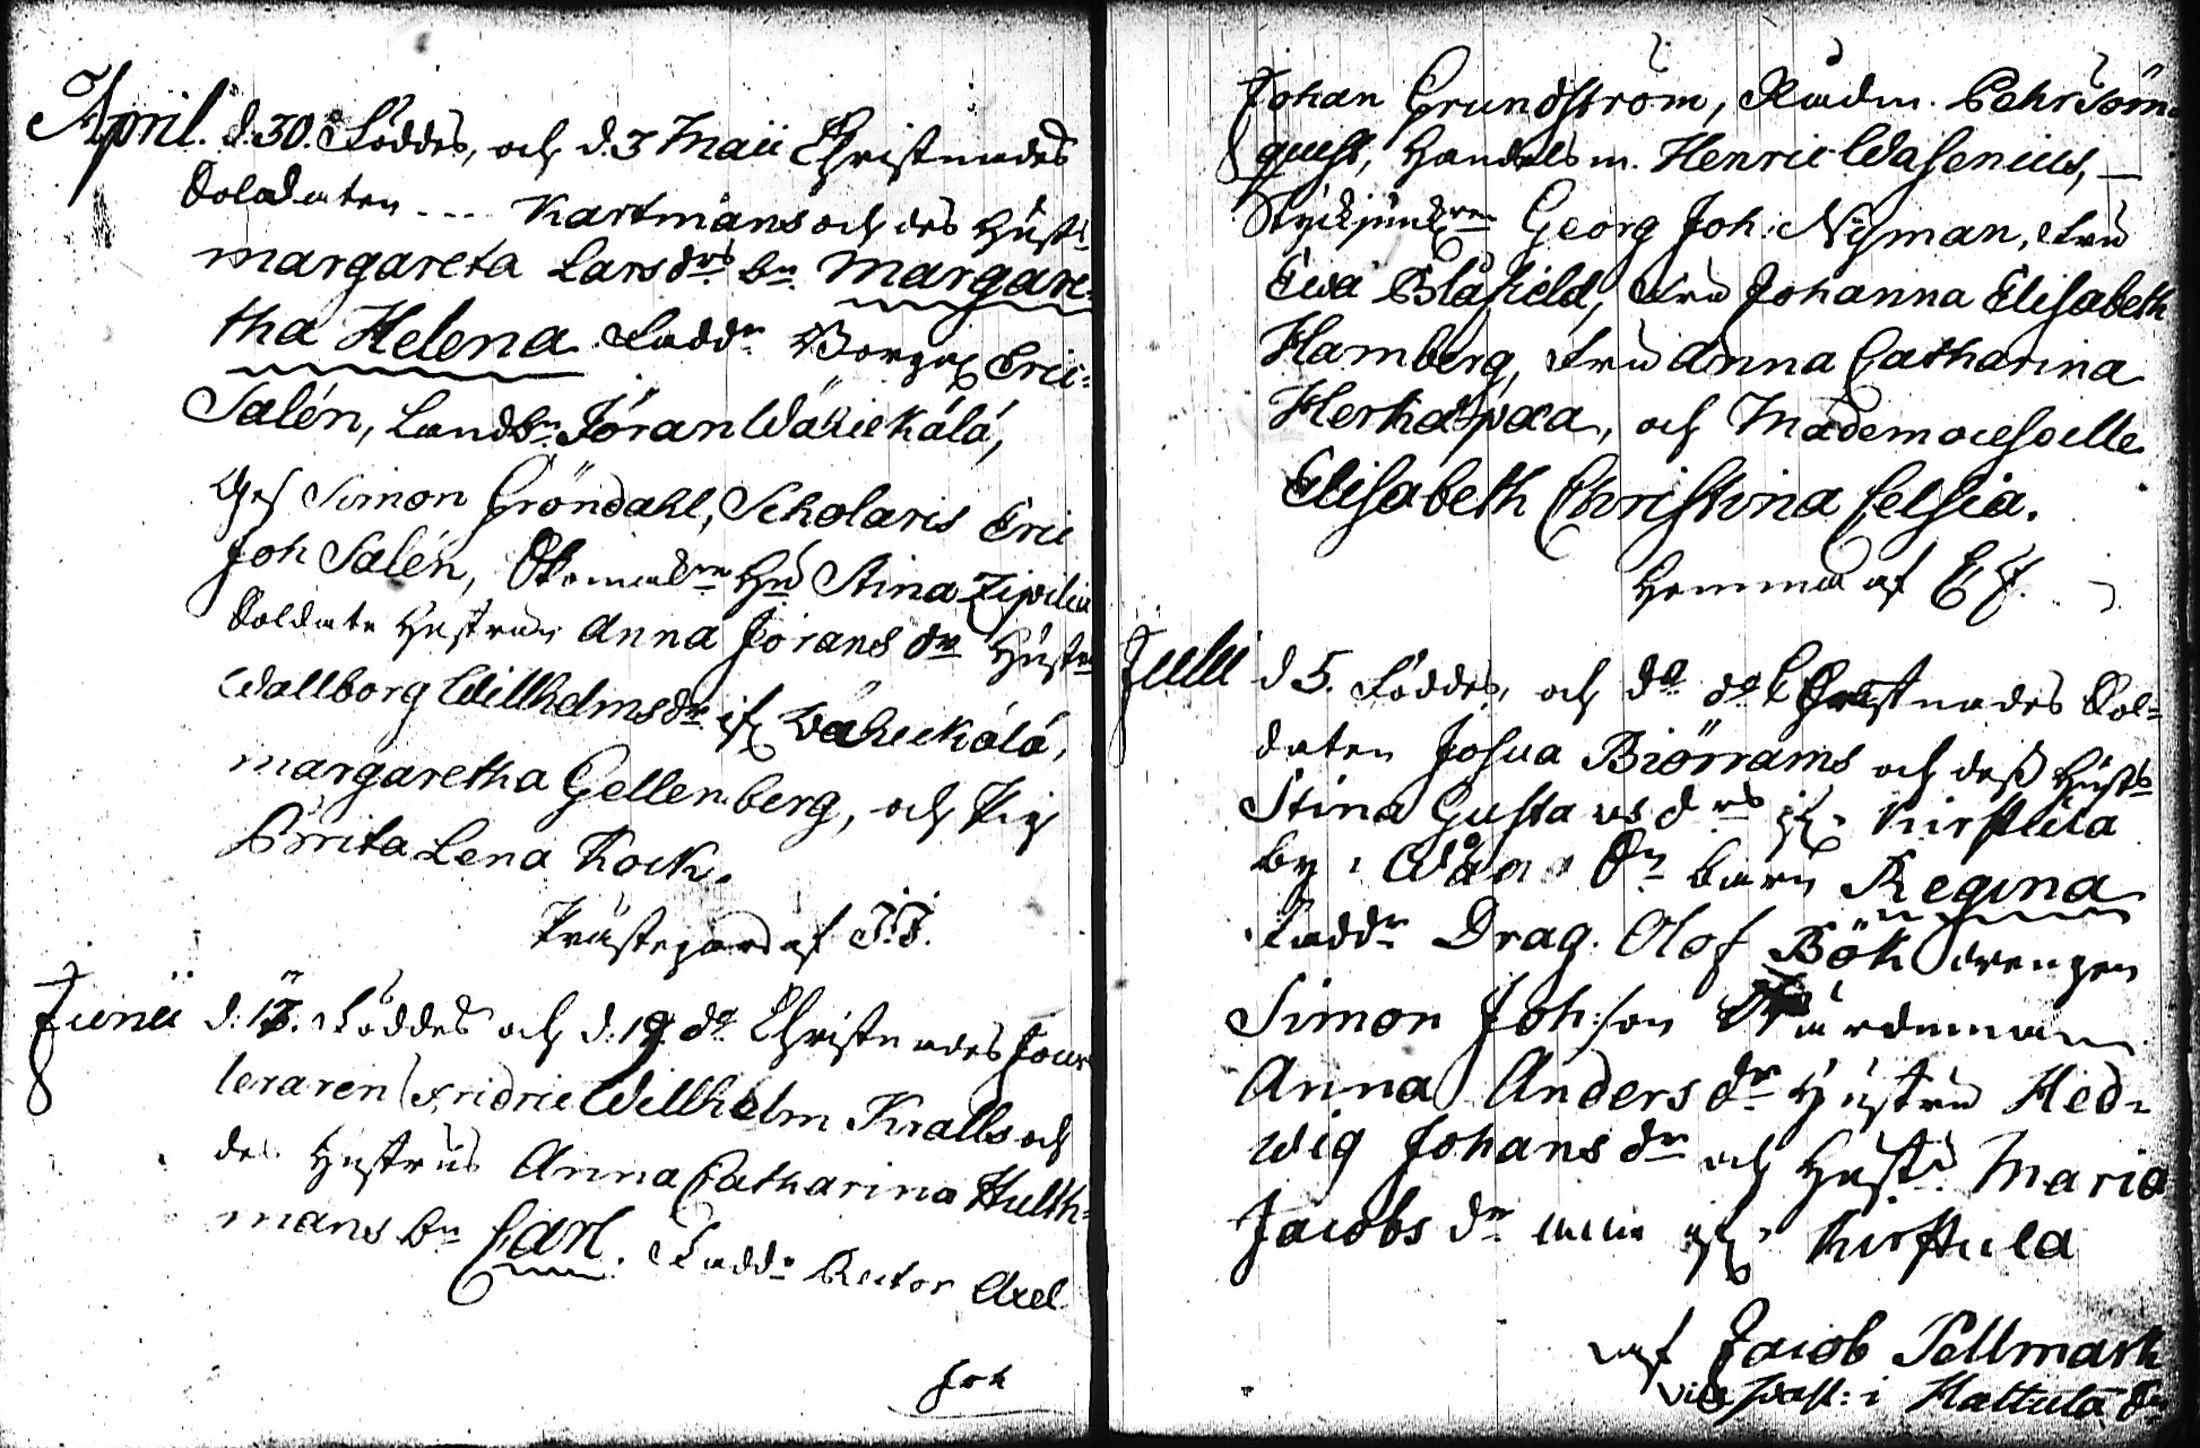 April. d. 30. Föddes, och d. 3 Maii Christnades
Soldaten --- Kartmans och des Hust:
Margareta Larsdrs bn. Margare=
tha Helena. Faddr. Borgar Eric=
Salén, Landb. Jöran Wähiekälä,
Ges Simon Gröndahl, Scholaris Eric
Joh Salén, Hu Stina Zipilia
Soldate Hustrun Anna Jörans dr Hustr
Wallborg Willhelmsdr if Wähickälä,
Margaretha Gellenberg, och Pig
Brita Lena Kock.
Prästegård af J.J.
Junii d. 17. Föddes och d. 19. do Christnades Jouv
leraren Fridric Willhelm Kralls och
des Hustrus Anna Catharina Hulth=
mans bn Carl. Faddr Rector Axel
Joh
Johan Grundström, Rådm. Pehr Törn
quist, Handelsm. Henric Wasenius, —
Styckjunk Georg Joh: Nyman, Fru
Ewa Blåfield, Fru Johanna Elisabeth
Hamberg, Fru Anna Catharina
Herkæpæa, och Mademoiesoelle
Elisabeth Christina Celsia.
Hemma af
Julii d 5. Föddes, och do do Christnades Sol=
daten Josua Biörrams och dess Hust:
Stina Gustavsdrs if. Kirstula
by i Wåna Sn barn Regina
Faddr Drag. Olof Böök drengen
Simon Joh:son
Anna Andersdr Hustru Hed=
wig Johansdr och Hust: Maria
Jacobsdr if. Kirstula
af Jacob Pellmark
Vice past: i Hattula Sn